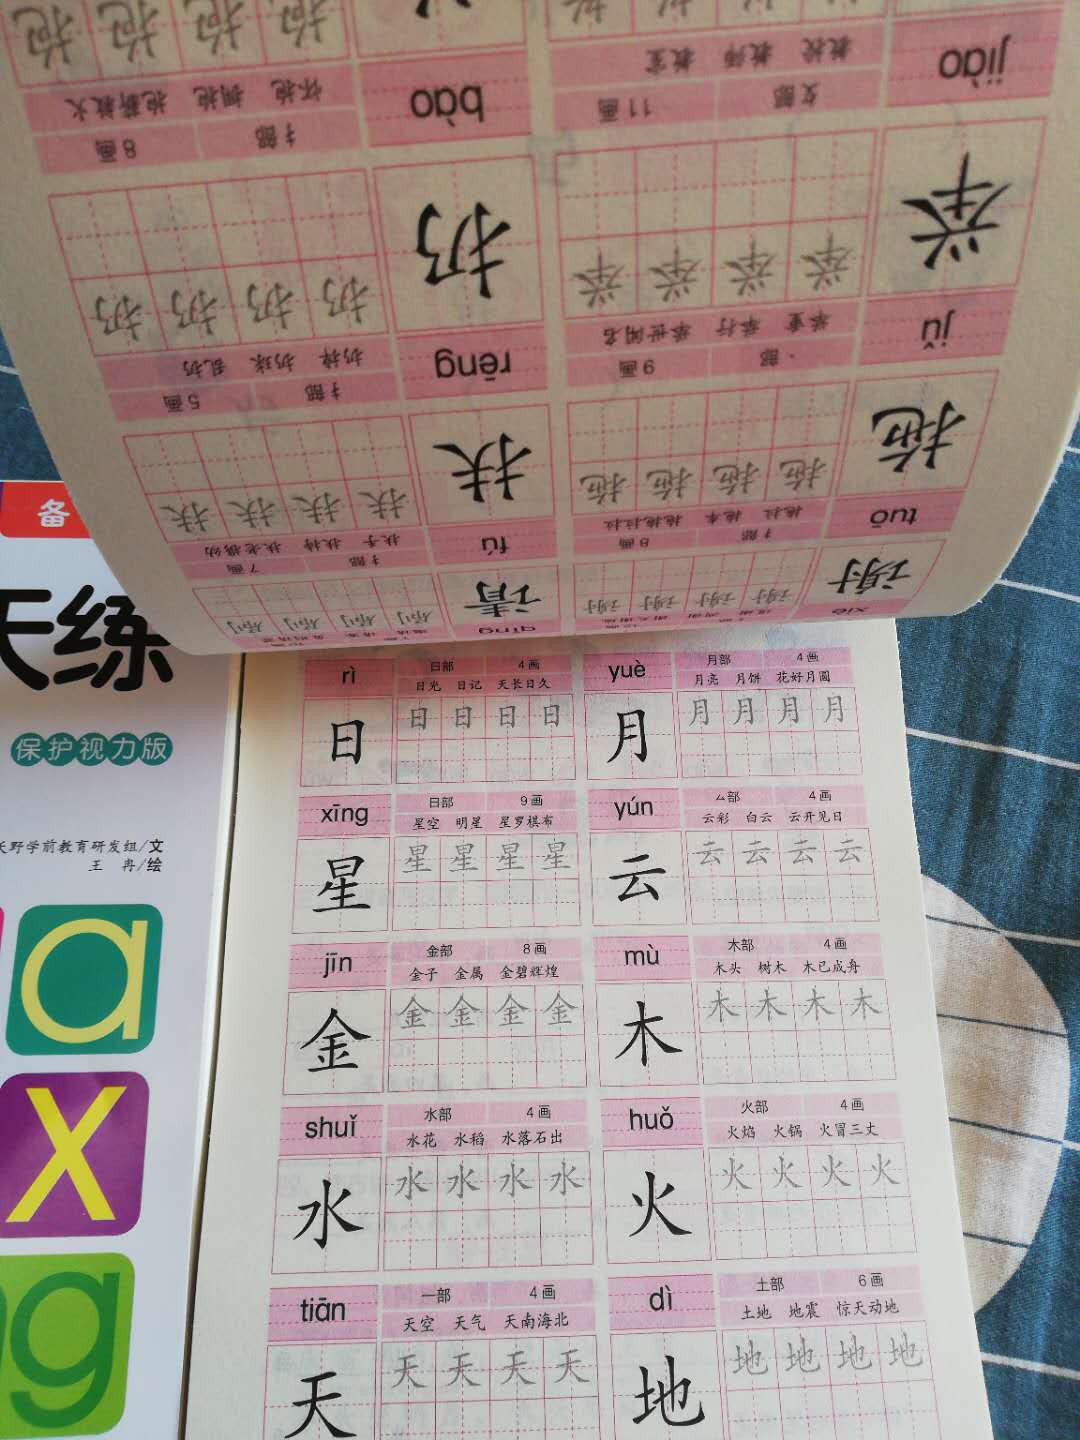 jiào
攵部 11画
教授 教师 教室
bào
扌部 8画
怀抱 拥抱 抱薪救火
抱 抱 抱 抱
举
举 举 举 举
jǔ
、部 9画
举重 举行 举世闻名
扔
扔 扔 扔 扔
rēng
扌部 5画
扔掉 扔球 乱扔
拖
拖 拖 拖 拖
tuō
扌部 8画
拖拉 拖车 拖拖拉拉
扶
扶 扶 扶 扶
fú
扌部 7画
扶手 扶持 扶老携幼
谢
谢 谢 谢 谢
xiè
请
qǐng
备
天练
保护视力版
野学前教育研发组/文
王 冉/绘
a
x
ng
rì
日部 4画
日光 日记 天长日久
日
日 日 日 日
yuè
月部 4画
月亮 月饼 花好月圆
月
月 月 月 月
xīng
日部 9画
星空 明星 星罗棋布
星
星 星 星 星
yún
厶部 4画
云彩 白云 云开见日
云
云 云 云 云
jīn
金部 8画
金子 金属 金碧辉煌
金
金 金 金 金
mù
木部 4画
木头 树木 木已成舟
木
木 木 木 木
shuǐ
水部 4画
水花 水稻 水落石出
水
水 水 水 水
huǒ
火部 4画
火焰 火锅 火冒三丈
火
火 火 火 火
tiān
一部 4画
天空 天气 天南海北
天
天 天 天 天
dì
土部 6画
土地 地震 惊天动地
地
地 地 地 地